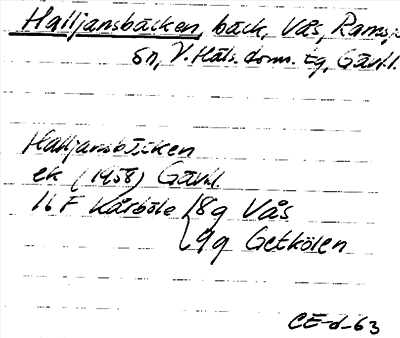 Halljansbäcken, bäck, Vås, Ramsjö
sn, V. Häls. doms. tg, Gävl.
Halljansbäcken
ek (1958) Gävl.
16F Kårböle 8g Vås
9g Getkölen
CE-d-63